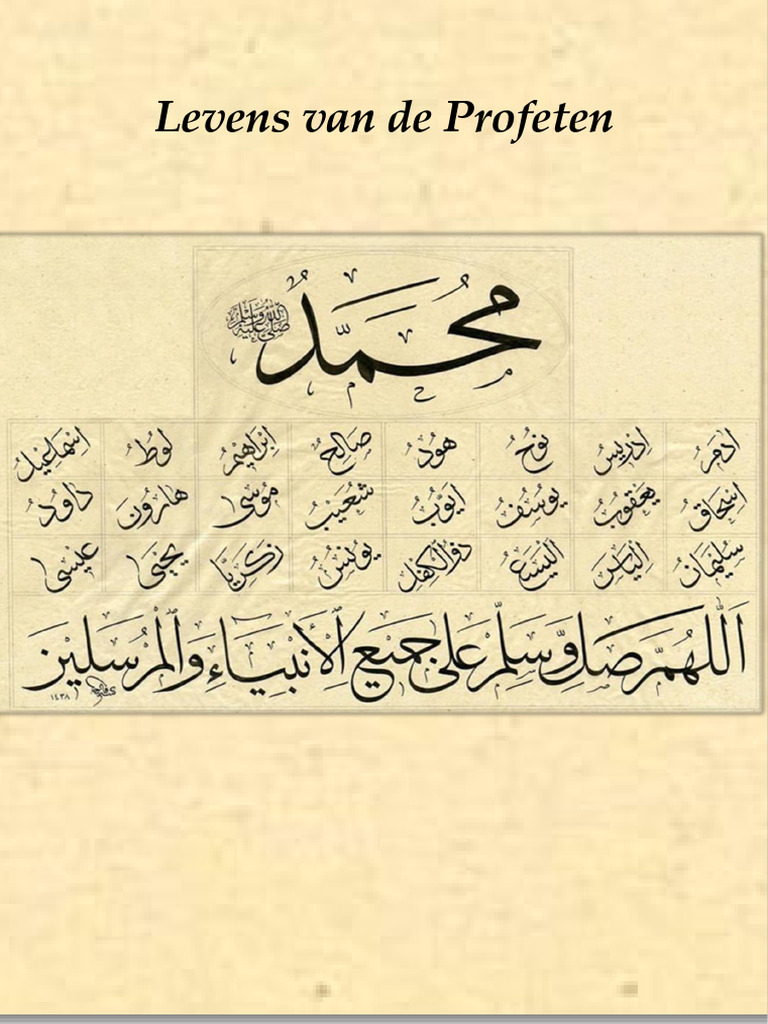 Levens van de Profeten
مُحَمَّدٌ
صلى الله عليه وسلم
اٰدَمُ اِدْرِيسُ نُوحٌ هُودٌ صَالِحٌ اِبْرَاهِيمُ لُوطٌ اِسْمَاعِيلُ
اِسْحَاقُ يَعْقُوبُ يُوسُفُ اَيُّوبُ شُعَيْبٌ مُوسٰى هَارُونَ دَاوُدُ
سُلَيْمَانُ اِلْيَاسَ اَلْيَسَعُ ذُو الْكِفْلِ يُونُسُ زَكَرِيَّا يَحْيٰى عِيسٰى
اَللّٰهُمَّ صَلِّ وَسَلِّمْ عَلٰى جَمِيعِ الْاَنْبِيَاءِ وَالْمُرْسَلِينَ
١٤٣٨